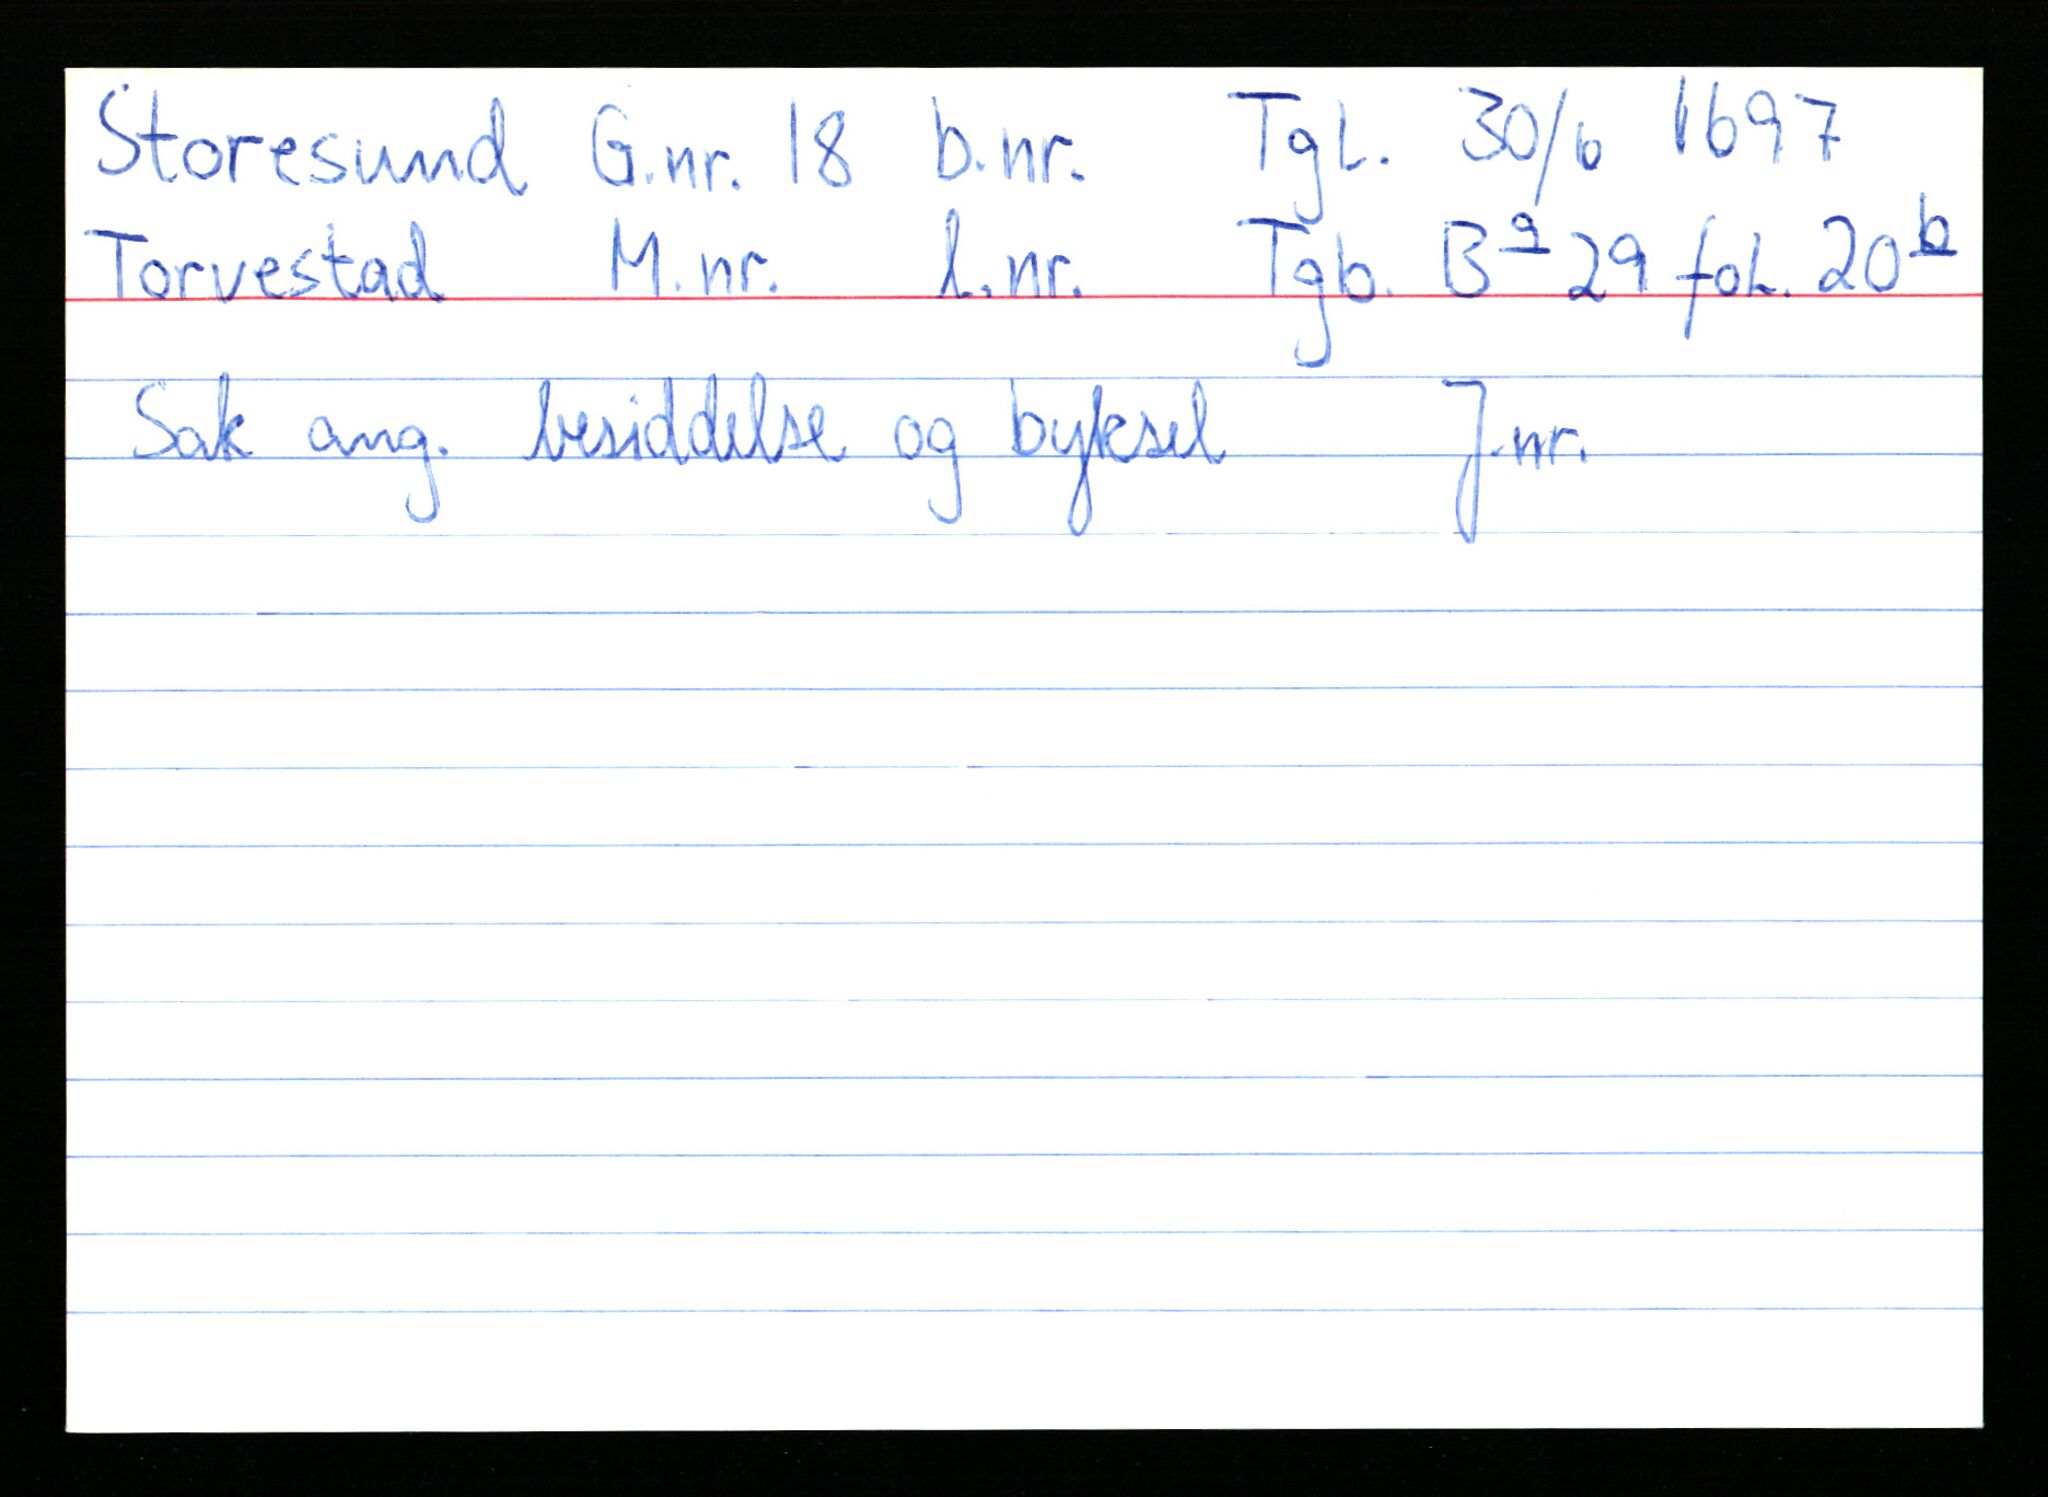 Storesund G.nr. 18 b.nr. Tgl. 30/6 1697
Torvestad M.nr. l.nr. Tgb. Bª 29 fol. 20ᵇ
Sak ang. besiddelse og byksel J.nr.